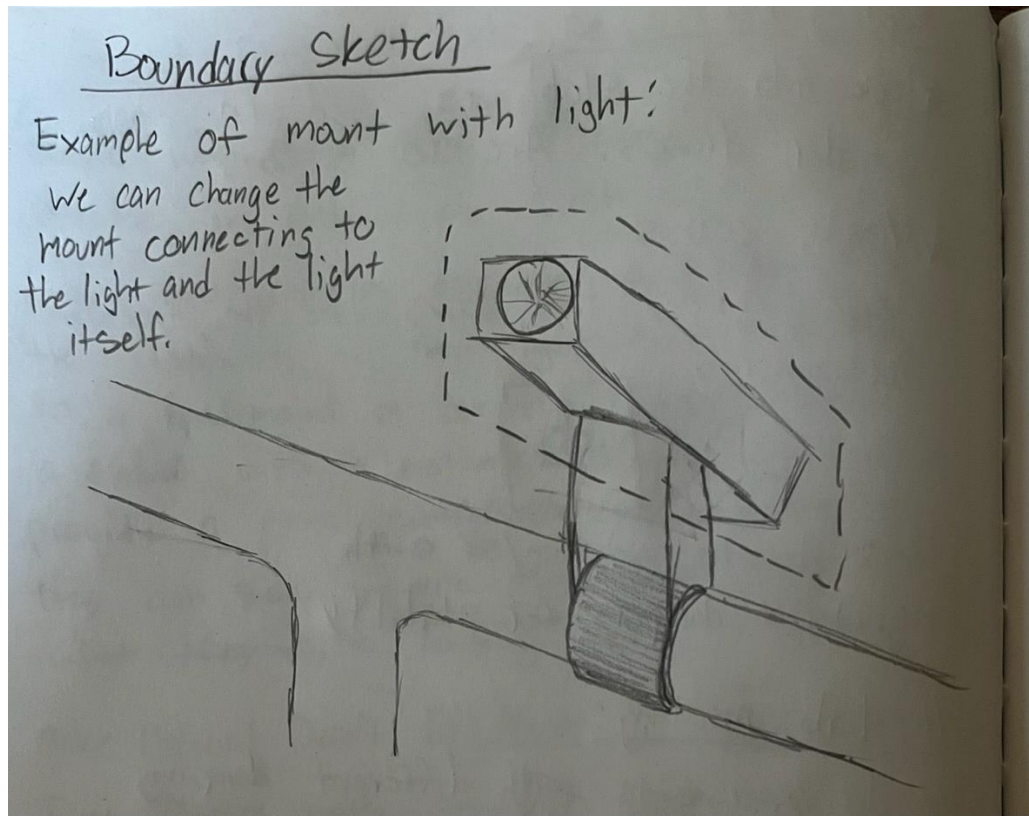 Boundary Sketch
Example of mount with light:
We can change the
mount connecting to
the light and the light
itself.